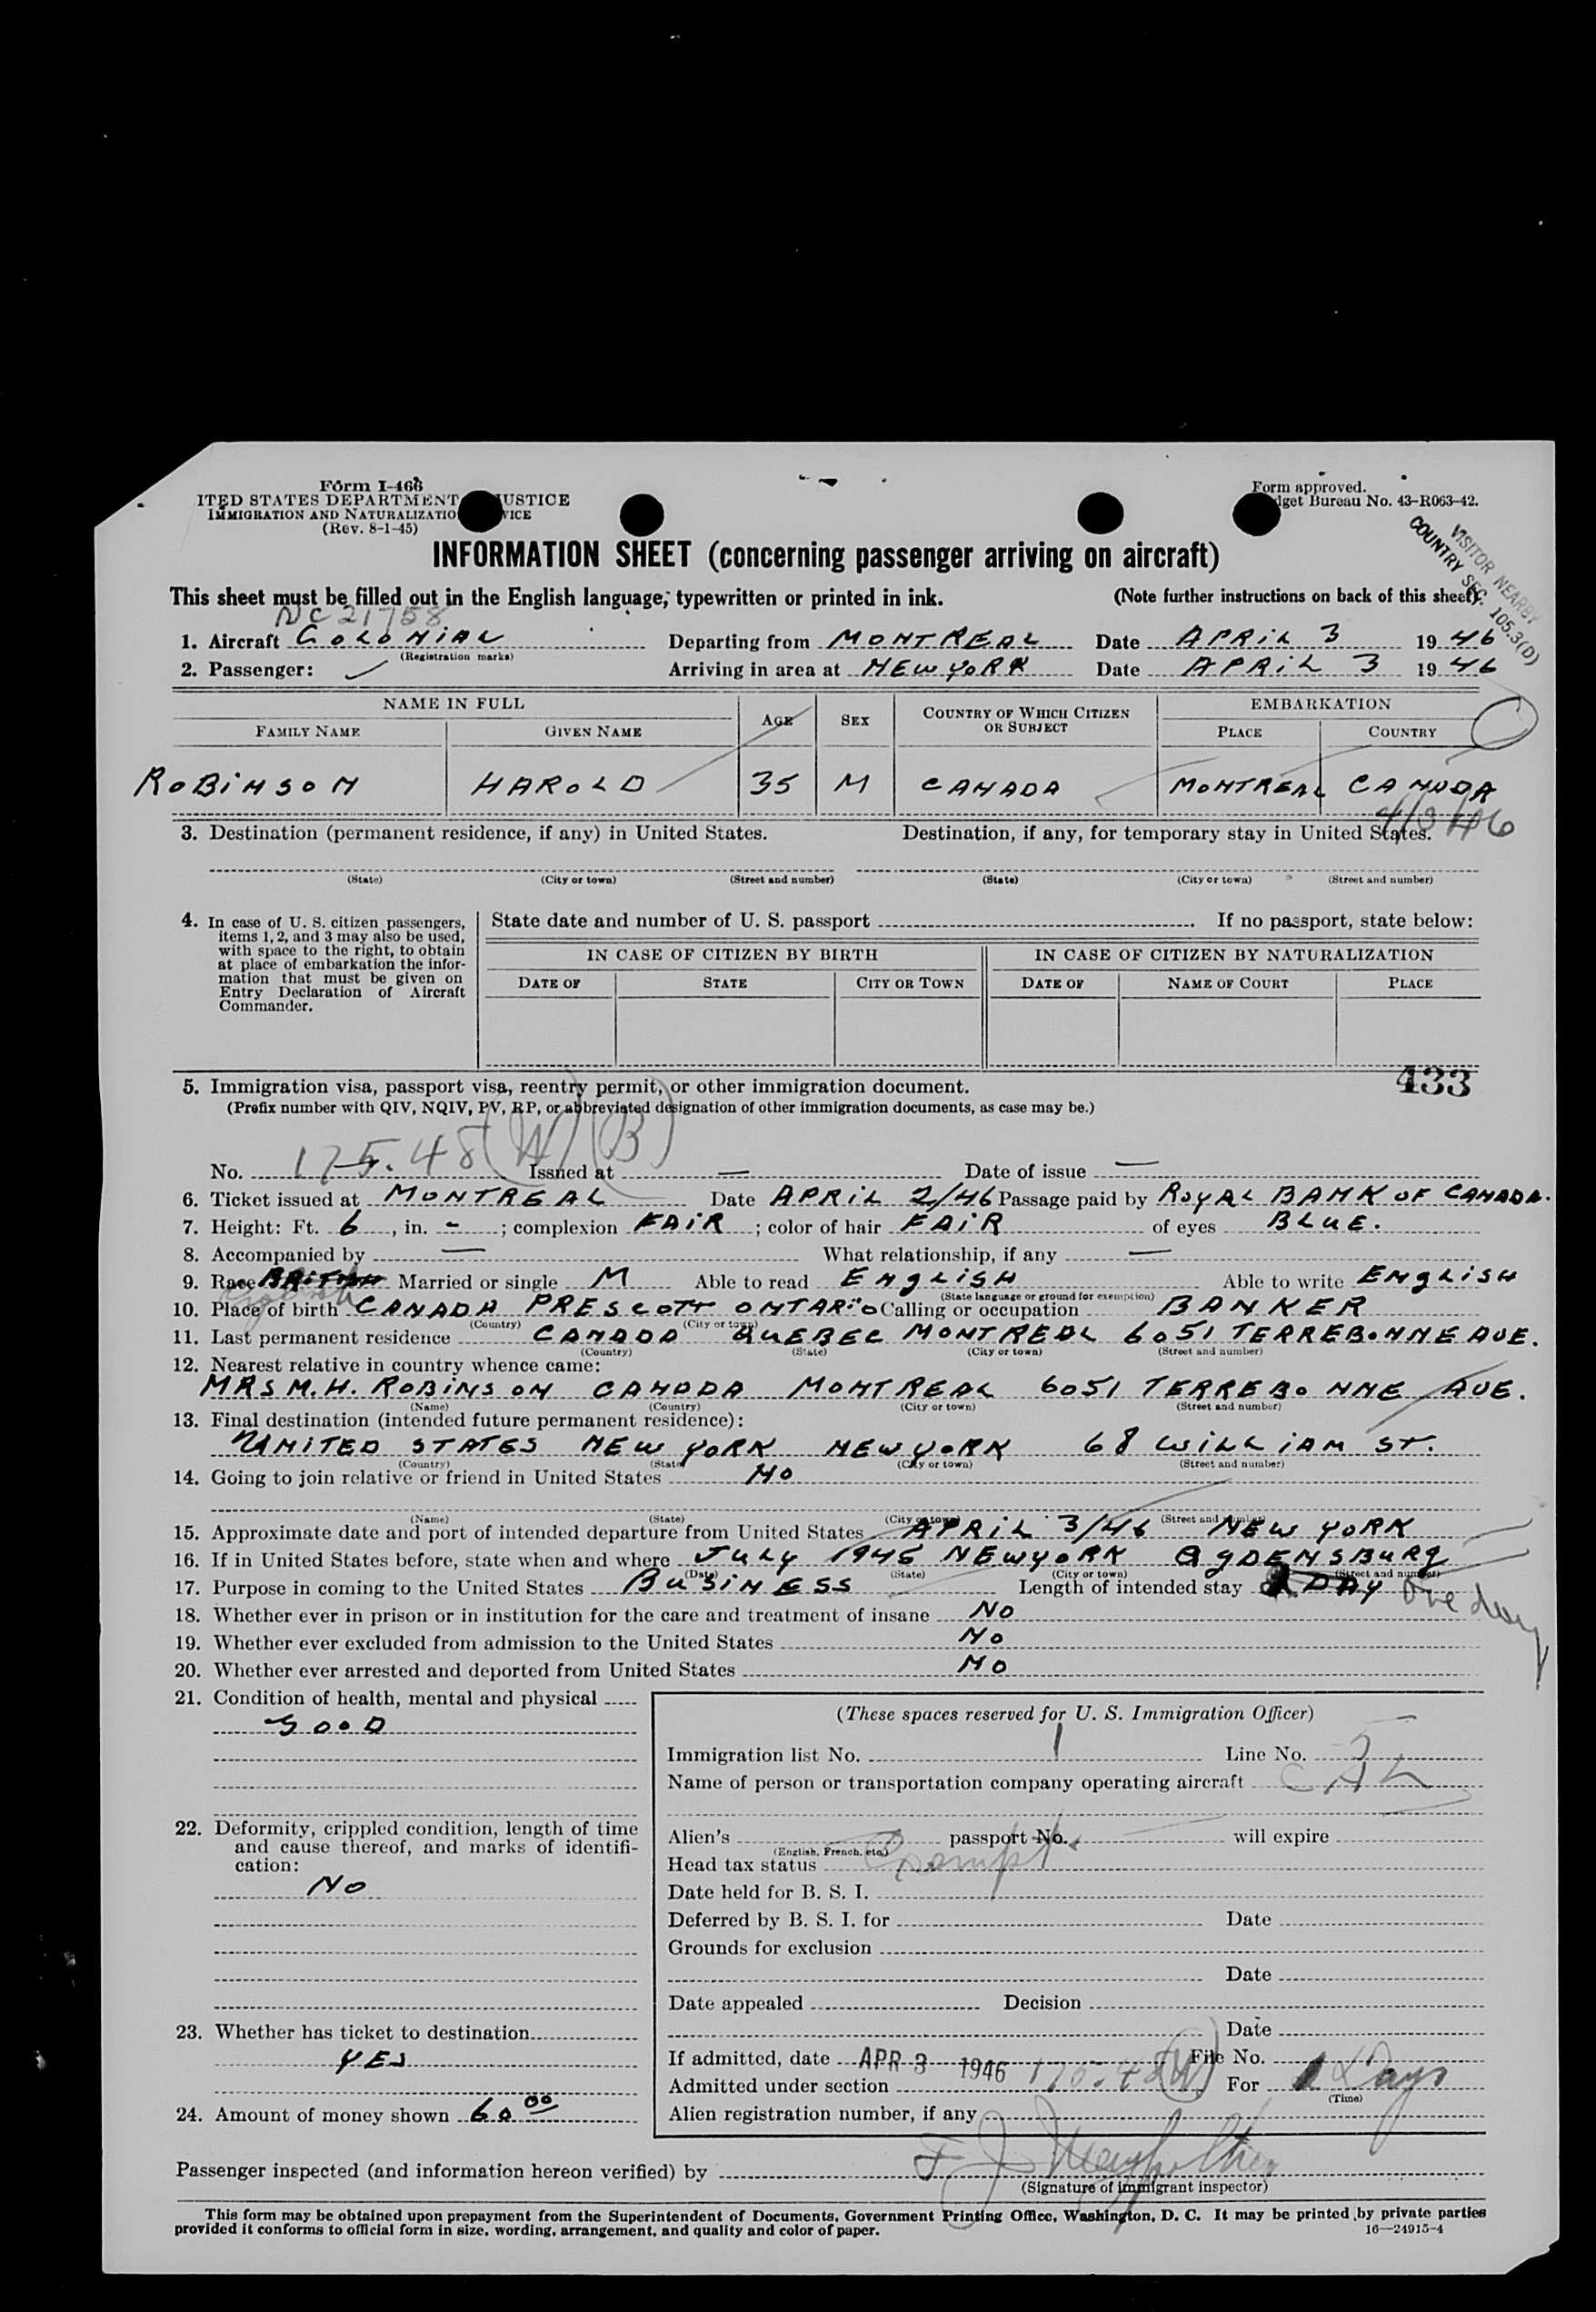 Form I-466
ITED STATES DEPARTMENT USTICE
IMMIGRATION AND NATURALIZATIO VICE
(Rev. 8-1-45)
Form approved.
dget Bureau No. 43-R063-42.
VISITOR NEARBY
COUNTRY SEC. 105.3(D)
INFORMATION SHEET (concerning passenger arriving on aircraft)
This sheet must be filled out in the English language, typewritten or printed in ink. (Note further instructions on back of this sheet).
NC 21758
1. Aircraft COLONIAL Departing from MONTREAL Date APRIL 3 1946
(Registration marks)
2. Passenger: Arriving in area at NEW YORK Date APRIL 3 1946
NAME IN FULL AGE SEX COUNTRY OF WHICH CITIZEN OR SUBJECT EMBARKATION
FAMILY NAME GIVEN NAME PLACE COUNTRY
ROBINSON HAROLD 35 M CANADA MONTREAL CANADA
4/3/46
3. Destination (permanent residence, if any) in United States. Destination, if any, for temporary stay in United States.
(State) (City or town) (Street and number) (State) (City or town) (Street and number)
4. In case of U. S. citizen passengers,
items 1, 2, and 3 may also be used,
with space to the right, to obtain
at place of embarkation the infor-
mation that must be given on
Entry Declaration of Aircraft
Commander.
State date and number of U. S. passport If no passport, state below:
IN CASE OF CITIZEN BY BIRTH IN CASE OF CITIZEN BY NATURALIZATION
DATE OF STATE CITY OR TOWN DATE OF NAME OF COURT PLACE
433
5. Immigration visa, passport visa, reentry permit, or other immigration document.
(Prefix number with QIV, NQIV, PV, RP, or abbreviated designation of other immigration documents, as case may be.)
No. 175.48 (W) (B) Issued at — Date of issue —
6. Ticket issued at MONTREAL Date APRIL 2/46 Passage paid by ROYAL BANK OF CANADA.
7. Height: Ft. 6, in. -; complexion FAIR; color of hair FAIR of eyes BLUE.
8. Accompanied by — What relationship, if any —
9. Race BRITISH Married or single M Able to read ENGLISH Able to write ENGLISH
(State language or ground for exemption)
10. Place of birth CANADA PRESCOTT ONTARIO Calling or occupation BANKER
(Country) (City or town)
11. Last permanent residence CANADA QUEBEC MONTREAL 6051 TERREBONNE AVE.
(Country) (State) (City or town) (Street and number)
12. Nearest relative in country whence came:
MRS M. H. ROBINSON CANADA MONTREAL 6051 TERREBONNE AVE.
(Name) (Country) (City or town) (Street and number)
13. Final destination (intended future permanent residence):
UNITED STATES NEW YORK NEW YORK 68 WILLIAM ST.
(Country) (State) (City or town) (Street and number)
14. Going to join relative or friend in United States NO
(Name) (State) (City or town) (Street and number)
15. Approximate date and port of intended departure from United States APRIL 3/46 NEW YORK
16. If in United States before, state when and where JULY 1945 NEW YORK OGDENSBURG
(Date) (State) (City or town) (Street and number)
17. Purpose in coming to the United States BUSINESS Length of intended stay DAY One day
18. Whether ever in prison or in institution for the care and treatment of insane NO
19. Whether ever excluded from admission to the United States NO
20. Whether ever arrested and deported from United States NO
21. Condition of health, mental and physical
GOOD
22. Deformity, crippled condition, length of time
and cause thereof, and marks of identifi-
cation:
NO
23. Whether has ticket to destination
YES
24. Amount of money shown 60.00
(These spaces reserved for U. S. Immigration Officer)
Immigration list No. 1 Line No. 5
Name of person or transportation company operating aircraft CAL
Alien's passport No. will expire
(English, French, etc.)
Head tax status Exempt
Date held for B. S. I.
Deferred by B. S. I. for Date
Grounds for exclusion
Date
Date appealed Decision
Date
If admitted, date APR 3 1946 File No.
Admitted under section 175.48(W) For 1 Days
(Time)
Alien registration number, if any
Passenger inspected (and information hereon verified) by F J
(Signature of immigrant inspector)
This form may be obtained upon prepayment from the Superintendent of Documents, Government Printing Office, Washington, D. C. It may be printed by private parties
provided it conforms to official form in size, wording, arrangement, and quality and color of paper. 16—24915-4